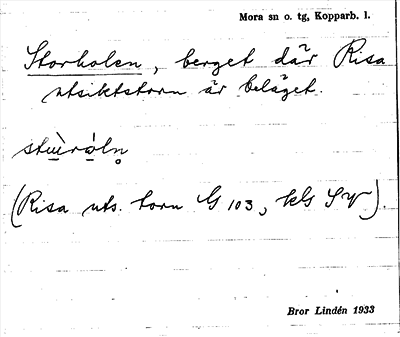 Mora sn o. tg, Kopparb. l.
Storholen, berget där Risa
utsiktstorn är beläget.
(Risa uts. torn G 103, kls
Bror Lindén 1933